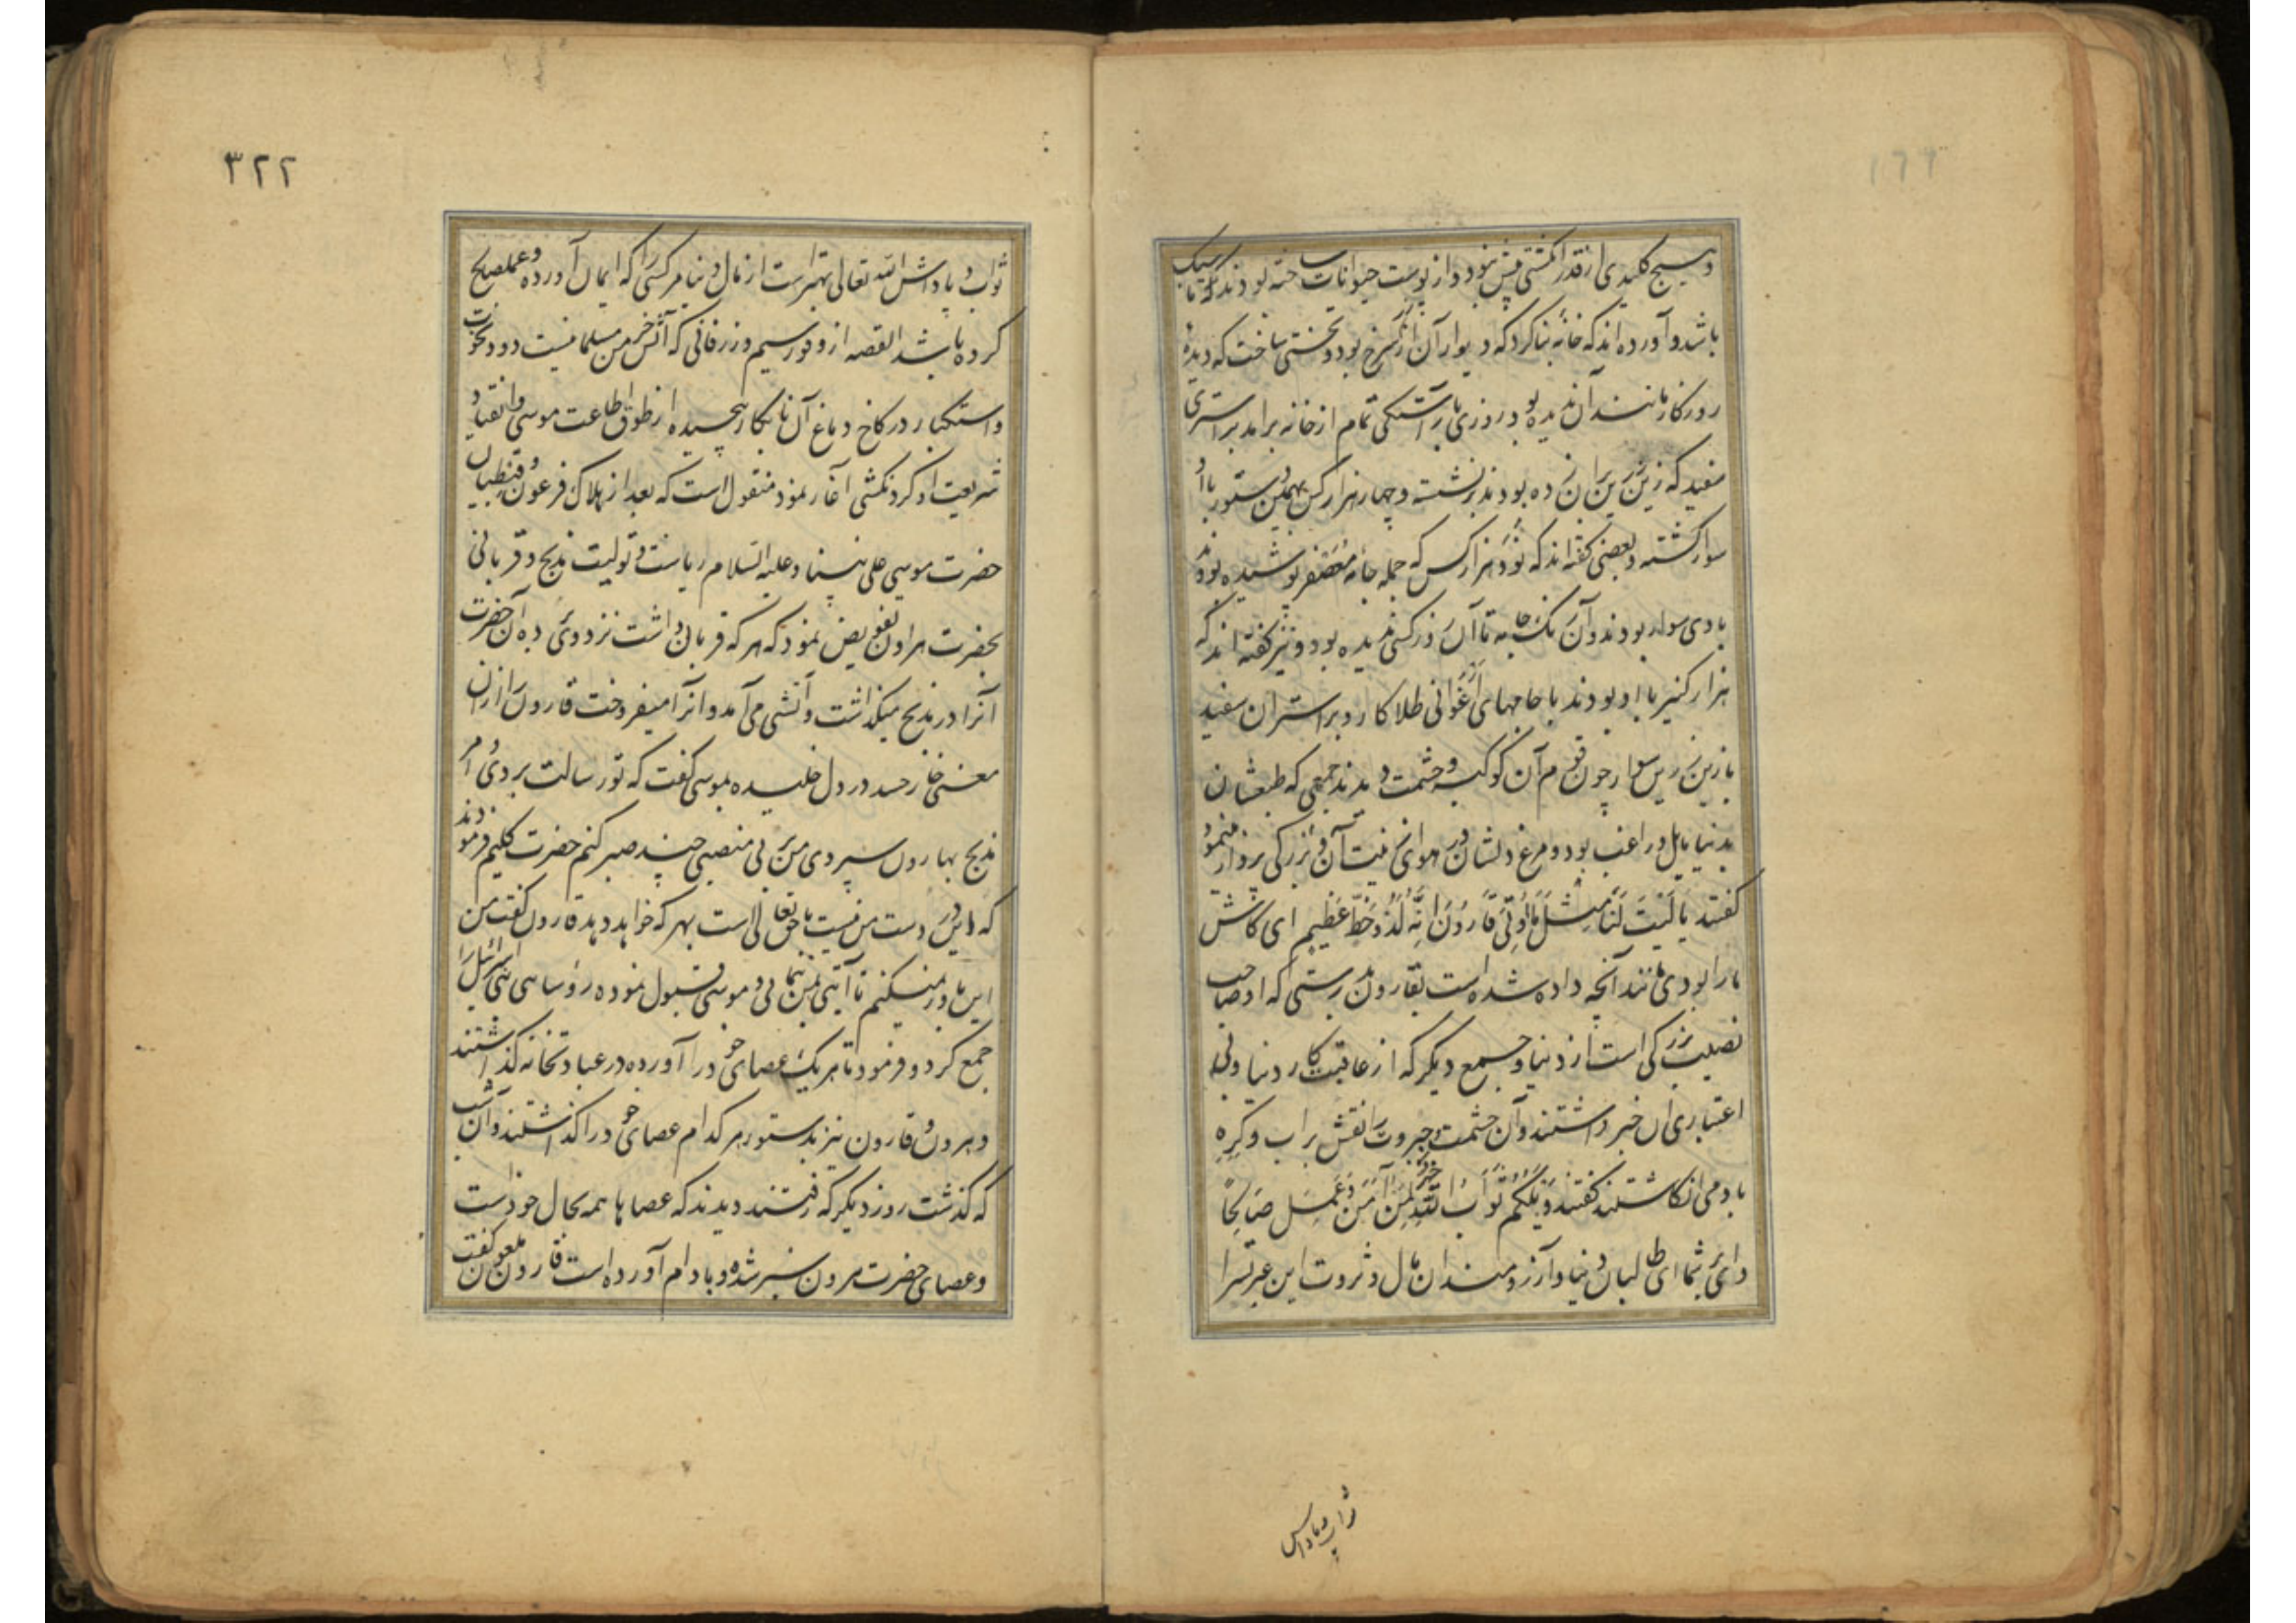 و هیچ کلیدی از قدر انگشتی بیش نبود و از پوست حیوانات ساخته بودند که تا سبک
باشد و آورده اند که خانه بنا کرد که دیوار آن از زر سرخ بود و تختی ساخت که دیدهٔ
روزگار مانند آن ندیده بود روزی با آراستگی تمام از خانه برآمد بر استری
سفید که زین زرین بران زده بودند برنشسته و چهار هزار کس بهمین دستور با او
سوار گشته و بعضی گفته اند که نود هزار کس که جمله جامه معصفر پوشیده بودند
با وی سوار بودند و آن رنگ جامه تا آن روز کسی ندیده بود و نیز گفته اند که
هزار کنیز با او بودند با جامهای ارغوانی طلا کار و بر استران سفید
با زین زرین سوار چون قوم آن کوکبه و حشمت دیدند جمعی که طبعشان
بدنیا مایل و راغب بود و مرغ دلشان در هوای زینت آن و بزرکی پرواز مینمود
گفتند یَا لَیْتَ لَنَا مِثْلَ مَا اُوتِیَ قَارُونَ اِنَّهُ لَذُو حَظٍّ عَظِیمٍ ای کاش
ما را بودی مانند آنچه داده شده است بقارون بدرستی که او صاحب
نصیب بزرکی است از دنیا و جمع دیکر که از عاقبت کار دنیا و بی
اعتباری آن خبر داشتند و آن حشمت و جبروت را نقش بر آب و گره
باد می انگاشتند گفتند وَیْلَکُمْ ثَوَابُ اللّٰهِ خَیْرٌ لِمَنْ آمَنَ وَعَمِلَ صَالِحاً
وای بر شما ای طالبان دنیا و آرزومندان مال و ثروت این عبرت سرا
ثواب و پاداش
٣٢٢
ثواب و پاداش الله تعالی بهتر است از مال دنیا مر کسی را که ایمان آورده و عمل صالح
کرده باشد القصه از وفور سیم و زر فانی که آتش خرمن مسلمانیست دود نخوت
و استکبار در کاخ دماغ آن نابکار پیچیده از طوق اطاعت موسی و انقیاد
شریعت او گردنکشی آغاز نمود منقول است که بعد از هلاک فرعون و قبطیان
حضرت موسی علی نبینا و علیه السلام ریاست و تولیت مذبح و قربانی
بحضرت هرون تفویض نمود که هر که قربان داشت نزد وی برده آن حضرت
آنرا در مذبح میگذاشت و آتشی می آمد و آنرا میفروخت قارون را ازان
معنی خار حسد در دل خلیده بموسی گفت که تو رسالت بردی و امر
مذبح بهارون سپردی من بر بی منصبی چند صبر کنم حضرت کلیم فرمودند
که این در دست من نیست با حق تعالی است بهر که خواهد دهد قارون گفت من
این باور نمیکنم تا آیتی بمن ننمایی و موسی قبول نموده رؤسای بنی اسرائیل را
جمع کرد و فرمود تا هر یک عصای خود را آورده در عبادتخانه گذاشتند
و هرون و قارون نیز بدستور هر کدام عصای خود را گذاشتند و آن شب
که گذشت روز دیکر که رفتند دیدند که عصاها همه بحال خود است
و عصای حضرت هرون سبز شده و بادام آورده است قارون ملعون گفت